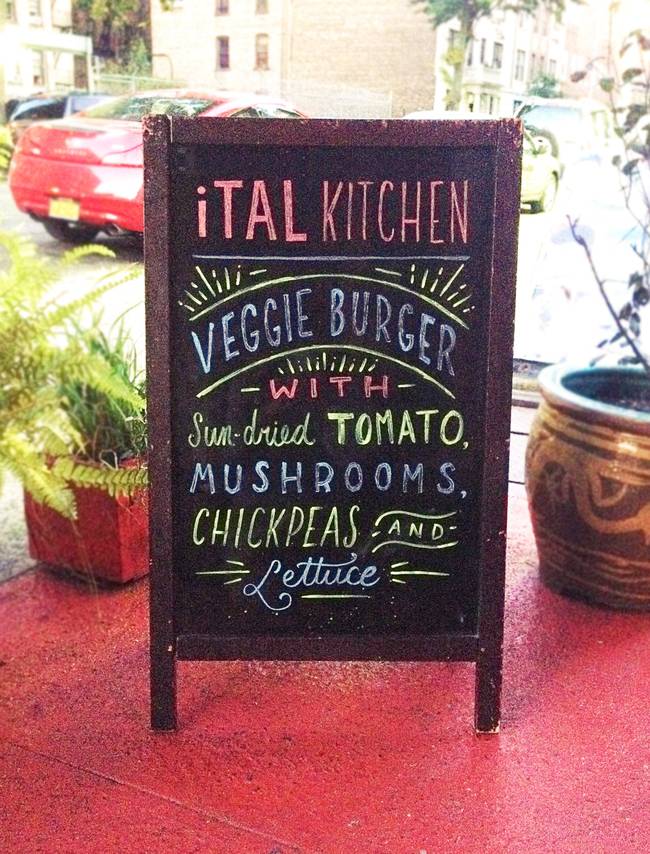 iTAL KITCHEN
VEGGIE BURGER
WITH
Sun-dried TOMATO,
MUSHROOMS,
CHICKPEAS, AND
Lettuce